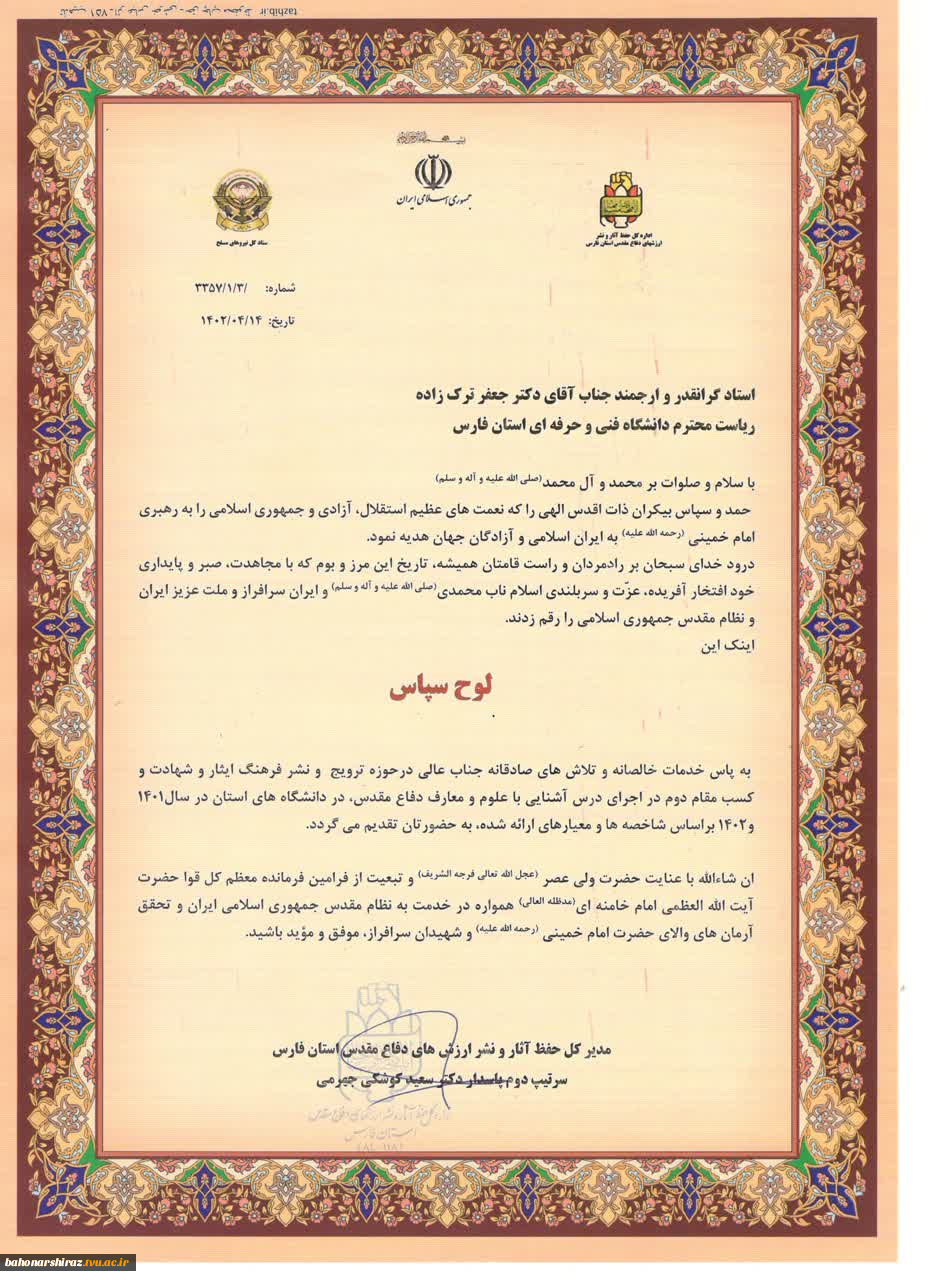 tazhib.ir
جمهوری اسلامی ایران
ستاد کل نیروهای مسلح
اداره کل حفظ آثار و نشر
ارزشهای دفاع مقدس استان فارس
شماره: ۳۳۵۷/۱/۳/
تاریخ: ۱۴۰۲/۰۴/۱۴
استاد گرانقدر و ارجمند جناب آقای دکتر جعفر ترک زاده
ریاست محترم دانشگاه فنی و حرفه ای استان فارس
با سلام و صلوات بر محمد و آل محمد(صلی الله علیه و آله و سلم)
حمد و سپاس بیکران ذات اقدس الهی را که نعمت های عظیم استقلال، آزادی و جمهوری اسلامی را به رهبری
امام خمینی (رحمه الله علیه) به ایران اسلامی و آزادگان جهان هدیه نمود.
درود خدای سبحان بر رادمردان و راست قامتان همیشه، تاریخ این مرز و بوم که با مجاهدت، صبر و پایداری
خود افتخار آفریده، عزّت و سربلندی اسلام ناب محمدی(صلی الله علیه و آله و سلم) و ایران سرافراز و ملت عزیز ایران
و نظام مقدس جمهوری اسلامی را رقم زدند.
اینک این
لوح سپاس
به پاس خدمات خالصانه و تلاش های صادقانه جناب عالی درحوزه ترویج و نشر فرهنگ ایثار و شهادت و
کسب مقام دوم در اجرای درس آشنایی با علوم و معارف دفاع مقدس، در دانشگاه های استان در سال۱۴۰۱
و۱۴۰۲ براساس شاخصه ها و معیارهای ارائه شده، به حضورتان تقدیم می گردد.
ان شاءالله با عنایت حضرت ولی عصر (عجل الله تعالی فرجه الشریف) و تبعیت از فرامین فرمانده معظم کل قوا حضرت
آیت الله العظمی امام خامنه ای(مدظله العالی) همواره در خدمت به نظام مقدس جمهوری اسلامی ایران و تحقق
آرمان های والای حضرت امام خمینی (رحمه الله علیه) و شهیدان سرافراز، موفق و مؤید باشید.
مدیر کل حفظ آثار و نشر ارزش های دفاع مقدس استان فارس
سرتیپ دوم پاسدار دکتر سعید کوشکی جهرمی
استان فارس
bahonarshiraz.tvu.ac.ir